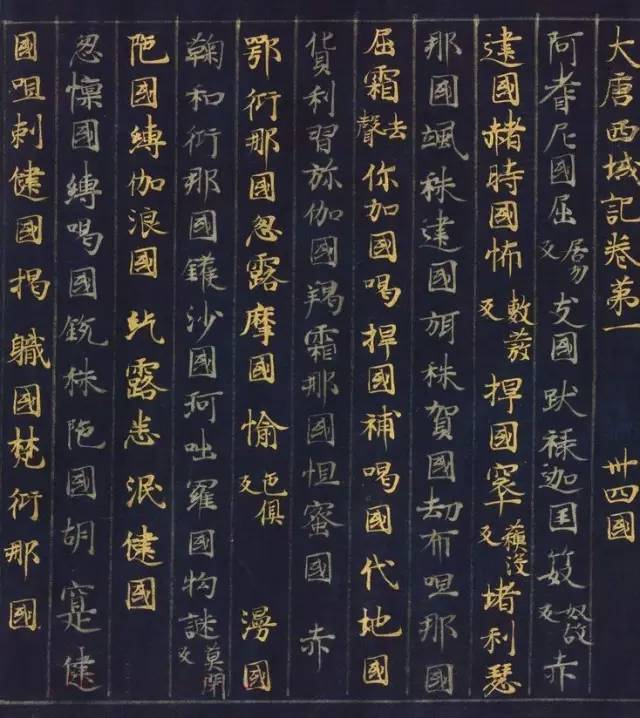 大唐西域記卷第一 卅四國
阿耆尼國屈居勿反支國跋祿迦国笯奴故反赤
建國赭時國怖敷發反捍國窣蘇沒反堵利瑟
那國颯秣建國弭秣賀國劫布呾那國
屈霜去聲你加國喝捍國補喝國代地國
貨利習弥伽國羯霜那國怛蜜國 赤
鄂衍那國忽露摩國愉色俱反漫國
鞠和衍那國鑊沙國珂咄羅國拘謎莫閇反
陁國縛伽浪國訖露悉泯健國
忽懍國縛喝國銳秣陁國胡寔健
國呾剌健國揭職國梵衍那國